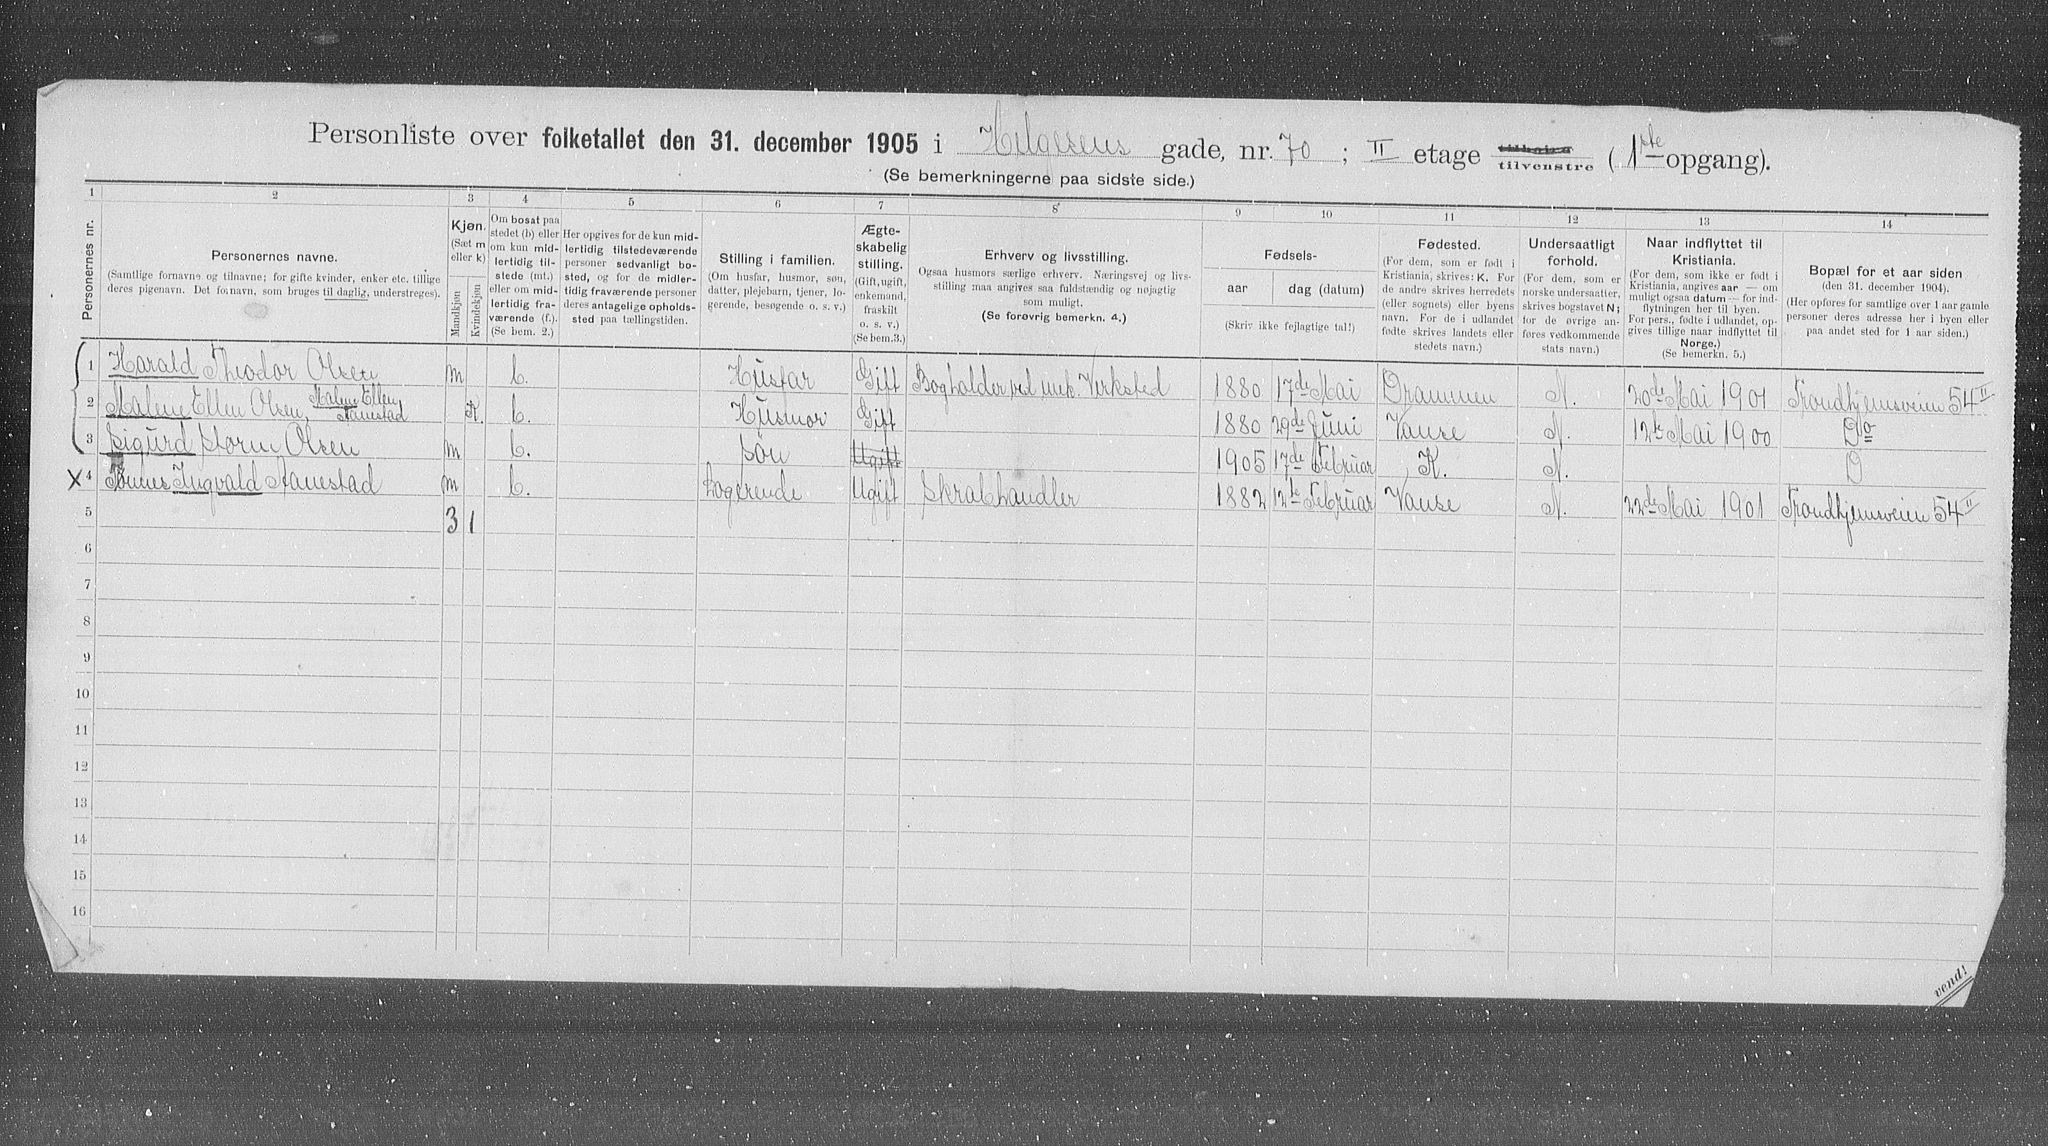 Personliste over folketallet den 31. december 1905 i Helgesens gade, nr. 70 ; II etage tilhøire tilvenstre ( 1ste opgang).
(Se bemerkningerne paa sidste side.)
1 2 3 4 5 6 7 8 9 10 11 12 13 14
Personernes nr.
Personernes navne.
(Samtlige fornavne og tilnavne; for gifte kvinder, enker etc. tillige
deres pigenavn. Det fornavn, som bruges til daglig, understreges).
Kjøn.
(Sæt m
eller k)
Mandkjøn
Kvindekjøn
Om bosat paa
stedet (b) eller
om kun mid-
lertidig til-
stede (mt.)
eller om mid-
lertidig fra-
værende (f.).
(Se bem. 2.)
Her opgives for de kun mid-
lertidig tilstedeværende
personer sedvanligt bo-
sted, og for de midler-
tidig fraværende personer
deres antagelige opholds-
sted paa tællingstiden.
Stilling i familien.
(Om husfar, husmor, søn,
datter, plejebarn, tjener, lo-
gerende, besøgende o. s. v.)
Ægte-
skabelig
stilling.
(Gift, ugift,
enkemand,
fraskilt
o. s. v.)
(Se bem.3.)
Erhverv og livsstilling.
Ogsaa husmors særlige erhverv. Næringsvej og livs-
stilling maa angives saa fuldstændig og nøjagtig
som muligt.
(Se forøvrig bemerkn. 4.)
Fødsels-
aar dag (datum)
(Skriv ikke fejlagtige tal!)
Fødested.
(For dem, som er født i
Kristiania, skrives: K. For
de andre skrives herredets
(eller sognets) eller byens
navn. For de i udlandet
fødte skrives landets eller
stedets navn.)
Undersaatligt
forhold.
(For dem, som er
norske undersaatter,
skrives bogstavet N;
for de øvrige an-
føres vedkommende
stats navn.)
Naar indflyttet til
Kristiania.
(For dem, som ikke er født i
Kristiania, angives aar — om
muligt ogsaa datum — for ind-
flytningen her til byen.
For pers., fødte i udlandet, op-
gives tillige naar indflyttet til
Norge.)
(Se bemerkn. 5.)
Bopæl for et aar siden
(den 31. december 1904).
(Her opføres for samtlige over 1 aar gamle
personer deres adresse her i byen eller
paa andet sted for 1 aar siden.)
1 Harald Theodor Olsen m b. Husfar Gift Bogholder ved mek. Verksted 1880 17de Mai Drammen N. 20de Mai 1901 Trondhjemsveien 54 II
2 Malene Ellen Olsen, Malene Ellen Stanestad K. b. Husmor Gift 1880 29de Juni Vanse N. 12te Mai 1900 Do
3 Sigurd Storm Olsen m b. søn Ugift 1905 17de Februar K. N. D
x 4 Ingvald Stanestad m b. Logerende Ugift Skrabhandler 1882 12te Februar Vanse N. 22de Mai 1901 Trondhjemsveien 54 II
5 3 1
6
7
8
9
10
11
12
13
14
15
16
vend!